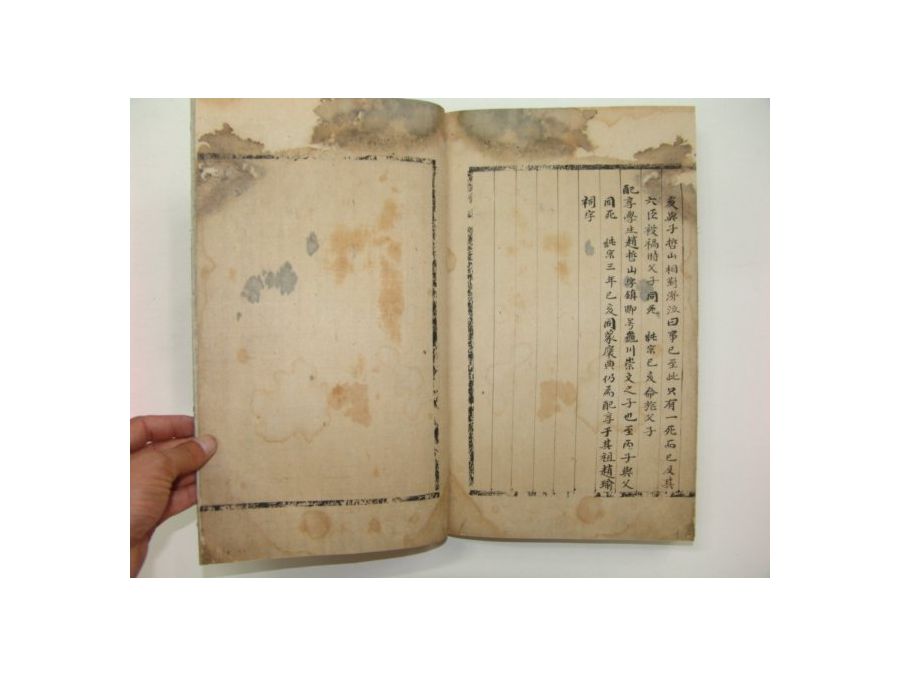 與子哲山相對涕泣曰事已至此只有一死而已及其
六臣禍時父子同死　宗己亥命旌父子
配享學生趙哲山字鎭卿号龜川崇文之子也至丙子與父
同死　宗三年己亥同蒙褒典仍爲配享于其祖趙瑜
祠宇